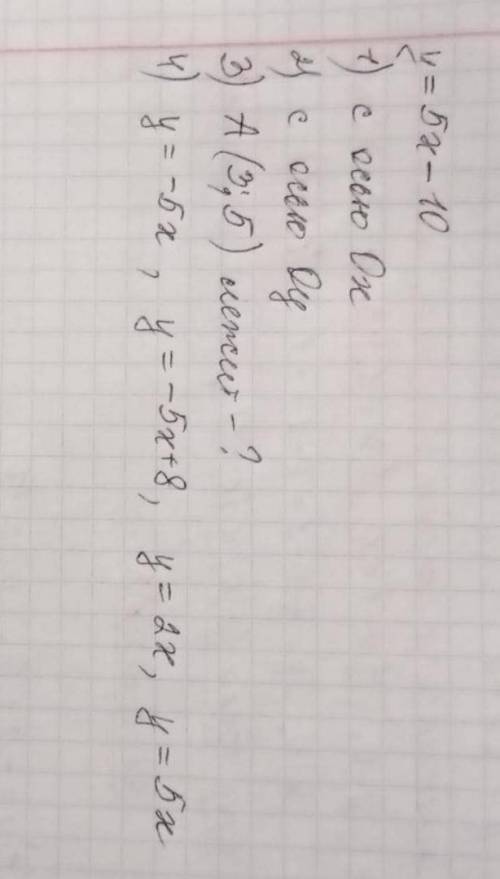 y = 5x - 10
1) с осью Ox
2) с осью Oy
3) A (3; 5) лежит - ?
4) y = -5x, y = -5x+8, y = 2x, y = 5x